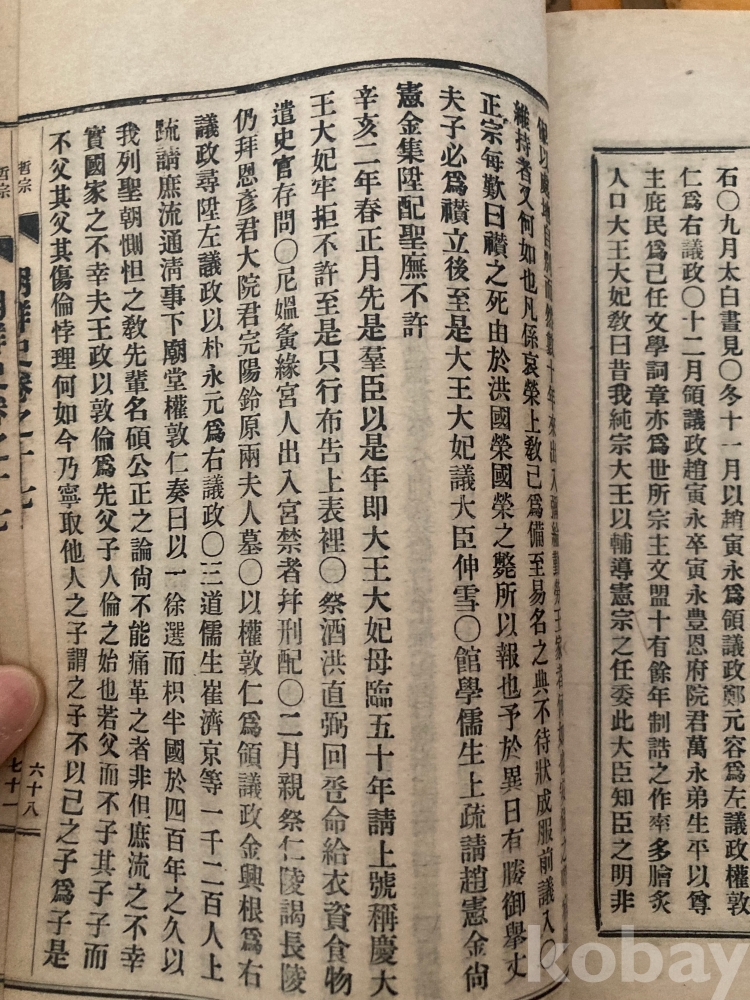 石○九月太白晝見○冬十一月以趙寅永爲領議政鄭元容爲左議政權敦
仁爲右議政○十二月領議政趙寅永卒寅永豊恩府院君萬永弟生平以尊
主庇民爲己任文學詞章亦爲世所宗主文盟十有餘年制誥之作率多膾炙
人口大王大妃敎曰昔我純宗大王以輔導憲宗之任委此大臣知臣之明非
自別而然數十年來出入
維持者又何如也凡係哀榮上敎已爲備至易名之典不待狀成服前議入○
正宗每歎曰禶之死由於洪國榮國榮之斃所以報也予於異日有勝御擧丈
夫子必爲禶立後至是大王大妃議大臣伸雪○館學儒生上疏請趙憲金尙
憲金集陞配聖廡不許
辛亥二年春正月先是羣臣以是年即大王大妃母臨五十年請上號稱慶大
王大妃牢拒不許至是只行布告上表裡○祭酒洪直弼回甲命給衣資食物
遣史官存問○尼媼夤緣宮人出入宮禁者幷刑配○二月親祭仁陵謁長陵
仍拜恩彥君大院君完陽鈴原兩夫人墓○以權敦仁爲領議政金興根爲右
議政尋陞左議政以朴永元爲右議政○三道儒生崔濟京等一千二百人上
疏請庶流通淸事下廟堂權敦仁奏曰以一徐選而枳半國於四百年之久以
我列聖朝惻怛之敎先輩名碩公正之論尙不能痛革之者非但庶流之不幸
實國家之不幸夫王政以敦倫爲先父子人倫之始也若父而不子其子子而
不父其父其傷倫悖理何如今乃寧取他人之子謂之子不以己之子爲子是
哲宗
朝鮮史卷之十七
六十八
哲宗
七十一
kobay